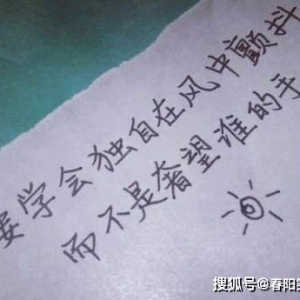 要学会独自在风中颤抖
而不是奢望谁的手
搜狐号@春阳